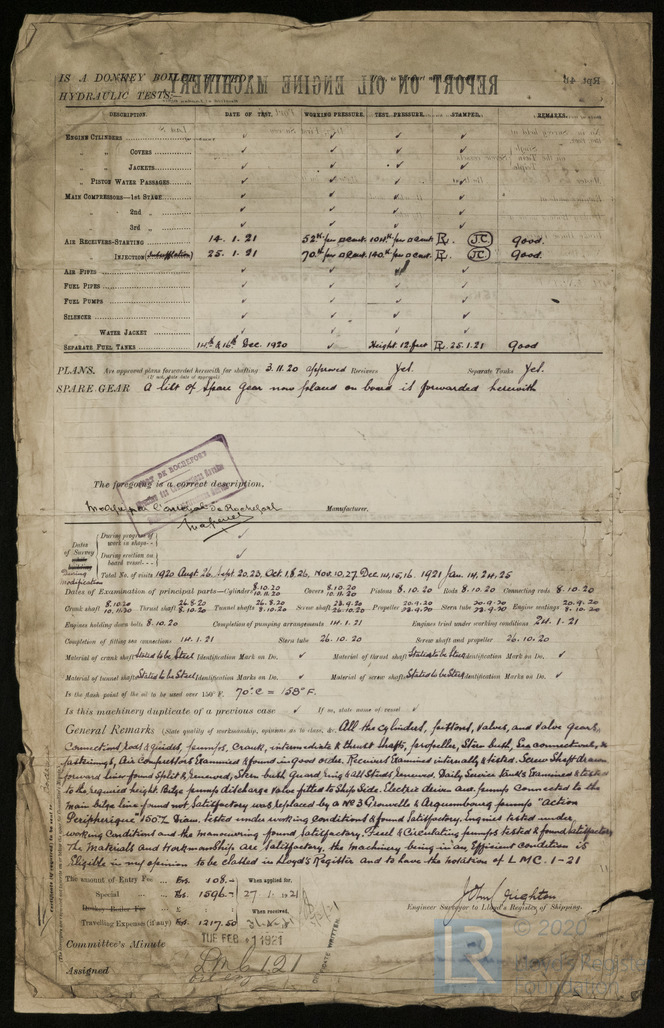 IS A DONKEY BOILER FITTED
REPORT ON OIL ENGINE MACHINERY
HYDRAULIC TESTS:—
DESCRIPTION. DATE OF TEST. WORKING PRESSURE. TEST PRESSURE. STAMPED. REMARKS.
ENGINE CYLINDERS ✓ ✓ ✓ ✓
„ „ COVERS ✓ ✓ ✓ ✓
„ „ JACKETS ✓ ✓ ✓ ✓
„ PISTON WATER PASSAGES ✓ ✓ ✓ ✓
MAIN COMPRESSORS—1st STAGE ✓ ✓ ✓ ✓
„ 2nd „ ✓ ✓ ✓ ✓
„ 3rd „ ✓ ✓ ✓ ✓
AIR RECEIVERS—STARTING 14. 1. 21 52 per □ cent. 104 per □ cent. LR. JC. good.
„ INJECTION 25. 1. 21 70 per □ cent. 140 per □ cent. LR. JC. Good.
AIR PIPES ✓ ✓ ✓
FUEL PIPES ✓ ✓ ✓ ✓
FUEL PUMPS ✓ ✓ ✓ ✓
SILENCER ✓ ✓ ✓ ✓
„ WATER JACKET ✓ ✓ ✓ ✓
SEPARATE FUEL TANKS 14th & 16th Dec. 1920 ✓ Height 12 feet LR. 25.1.21 Good
PLANS. Are approved plans forwarded herewith for shafting 3.11.20 approved Receivers Yes. Separate Tanks Yes.
SPARE GEAR A list of Spare Gear now placed on board is forwarded herewith
PORT DE ROCHEFORT
The foregoing is a correct description,
de Rochefort Manufacturer.
Dates of Survey while building During Modification
During progress of work in shops - - ✓
During erection on board vessel - - - ✓
Total No. of visits 1920 Augt. 26, Sept. 20.23, Oct. 1,8,26, Nov. 10,27, Dec. 14,15,16. 1921 Jan. 14,24,25
Dates of Examination of principal parts—Cylinders 8.10.20 10.11.20 Covers 8.10.20 10.11.20 Pistons 8.10.20 Rods 8.10.20 Connecting rods 8.10.20
Crank shaft 8.10.20 10.11.20 Thrust shaft 26.8.20 8.10.20 Tunnel shafts 26.8.20 8.10.20 Screw shaft Propeller Stern tube Engine seatings 8.10.20
Engines holding down bolts 8.10.20 Completion of pumping arrangements 14.1.21 Engines tried under working conditions 24.1.21
Completion of fitting sea connections 14.1.21 Stern tube 26.10.20 Screw shaft and propeller 26.10.20
Material of crank shaft Stated to be Steel Identification Mark on Do. ✓ Material of thrust shaft Stated to be Steel Identification Mark on Do. ✓
Material of tunnel shafts Stated to be Steel Identification Marks on Do. ✓ Material of screw shafts Stated to be Steel Identification Marks on Do. ✓
Is the flash point of the oil to be used over 150° F. 70°C = 158°F.
Is this machinery duplicate of a previous case ✓ If so, state name of vessel ✓
General Remarks (State quality of workmanship, opinions as to class, &c. All the cylinders, pistons, valves, and valve gears,
Connections, Rods & Guides, pumps, crank, intermediate & thrust shafts, propeller, Stern bush, Sea connections, &
fastenings, Air Compressors Examined & found in good order. Receivers Examined internally & tested. Screw Shaft drawn
forward liner found Split & Renewed, Stern bush Guard ring & all Studs Renewed. Daily Service tanks Examined & tested
to the required height. Bilge pumps discharge valve fitted to Ship Side. Electric drive and pump connected to the
main bilge line found not Satisfactory was Replaced by a No 3 Pionville & Arquembourg pump "Action
Peripherique" 150% Diam, tested under working conditions & found Satisfactory. Engines tested under
working conditions and the manoeuvring found Satisfactory. Fuel & Circulating pumps tested & found Satisfactory
The Materials and Workmanship are Satisfactory. the machinery being in an Efficient condition is
Eligible in my opinion to be classed in Lloyd's Register and to have the notation of LMC. 1-21
The amount of Entry Fee .. Frs. 108.- When applied for,
Special Frs. 1596.- 27.1.1921
Donkey Boiler Fee £ When received,
Travelling Expenses (if any) Frs. 1217.50
John Crighton
Engineer Surveyor to Lloyd's Register of Shipping.
Committee's Minute TUE FEB 1 1921
Assigned LMC 1.21
oil eng
CERTIFICATE WRITTEN
© 2020
LR
Lloyd's Register
Foundation